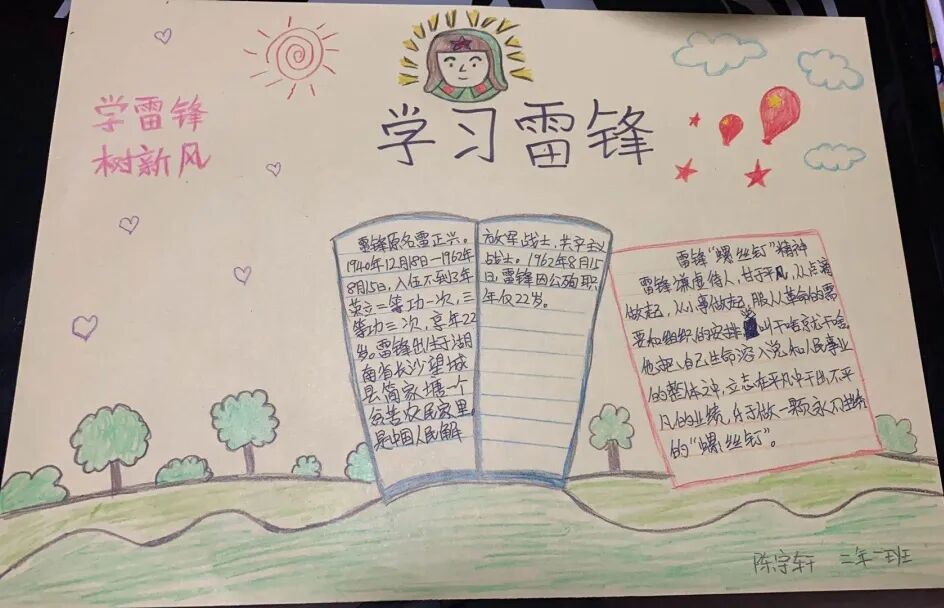 学习雷锋
学雷锋
树新风
雷锋原名雷正兴。
1940年12月18日-1962年
8月15日,入伍不到3年
荣立二等功一次,三
等功三次,享年22
岁。雷锋出生于湖
南省长沙望城
县简家塘一个
贫苦农民家里。
是中国人民解
放军战士,共产主义
战士。1962年8月15
日,雷锋因公殉职
年仅22岁。
雷锋“螺丝钉”精神
雷锋谦虚待人,甘于平凡,从点滴
做起,从小事做起,服从革命的需
要和组织的安排,叫干啥就干啥,
他把自己生命溶入党和人民事业
的整体之中,立志在平凡中干出不平
凡的业绩,乐于做一颗永不生锈
的“螺丝钉”。
陈宇轩 二年二班